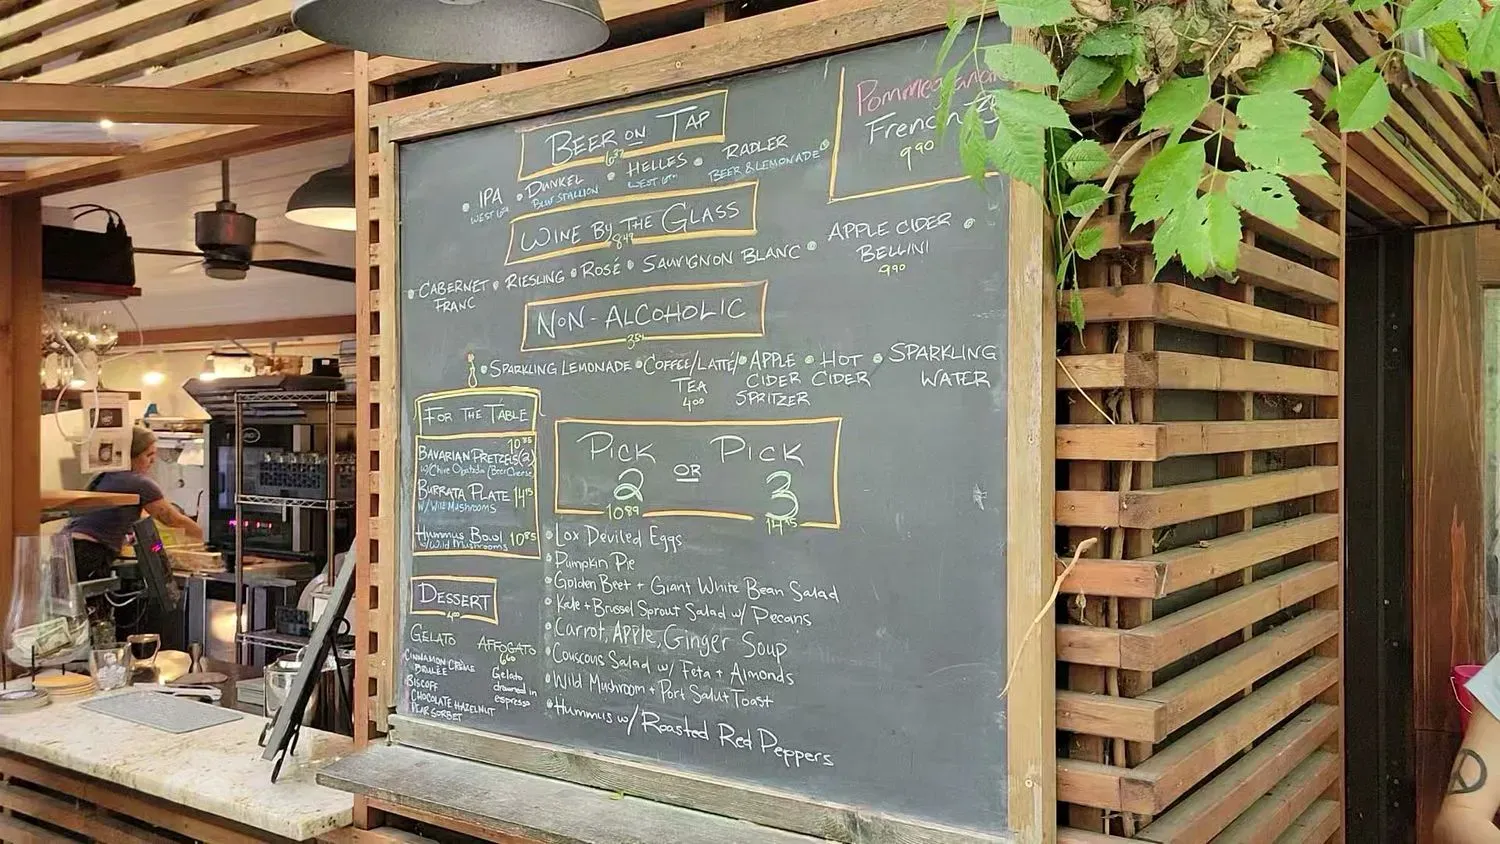 BEER ON TAP
IPA
WEST 6TH
DUNKEL
BLUE STALLION
HELLES
WEST 6TH
RADLER
BEER & LEMONADE
French 75
9 90
WINE BY THE GLASS
8 49
CABERNET FRANC
RIESLING
ROSÉ
SAUVIGNON BLANC
APPLE CIDER
BELLINI
9 90
NON-ALCOHOLIC
SPARKLING LEMONADE
COFFEE/LATTÉ/
TEA
4 00
APPLE
CIDER
SPRITZER
HOT
CIDER
SPARKLING
WATER
FOR THE TABLE
BAVARIAN PRETZELS (2)
w/Chive Obatzda/Beer Cheese
BURRATA PLATE
W/ WILD MUSHROOMS
HUMMUS BOWL 10 85
w/Wild Mushrooms
PICK 2 OR PICK 3
10 89
Lox Deviled Eggs
Pumpkin Pie
Golden Beet + Giant White Bean Salad
Kale + Brussel Sprout Salad w/ Pecans
Carrot, Apple, Ginger Soup
Couscous Salad w/ Feta + Almonds
Wild Mushroom + Port Salut Toast
Hummus w/ Roasted Red Peppers
DESSERT
GELATO
CINNAMON CRÈME
BRULÉE
BISCOFF
CHOCOLATE HAZELNUT
PEAR SORBET
AFFOGATO
Gelato
drowned in
espresso